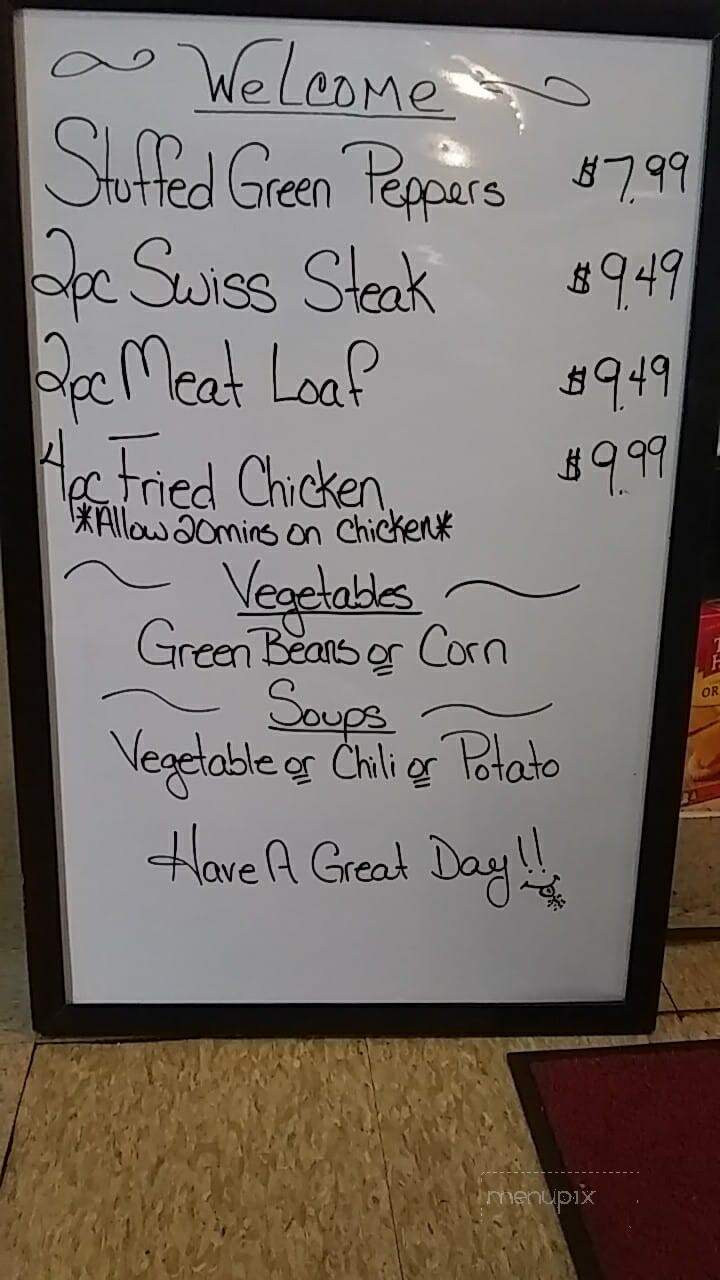 Welcome
Stuffed Green Peppers $7.99
2pc Swiss Steak $9.49
2pc Meat Loaf $9.49
4pc Fried Chicken $9.99
*Allow 20mins on chicken*
Vegetables
Green Beans or Corn
Soups
Vegetable or Chili or Potato
Have A Great Day!!
OR
menupix